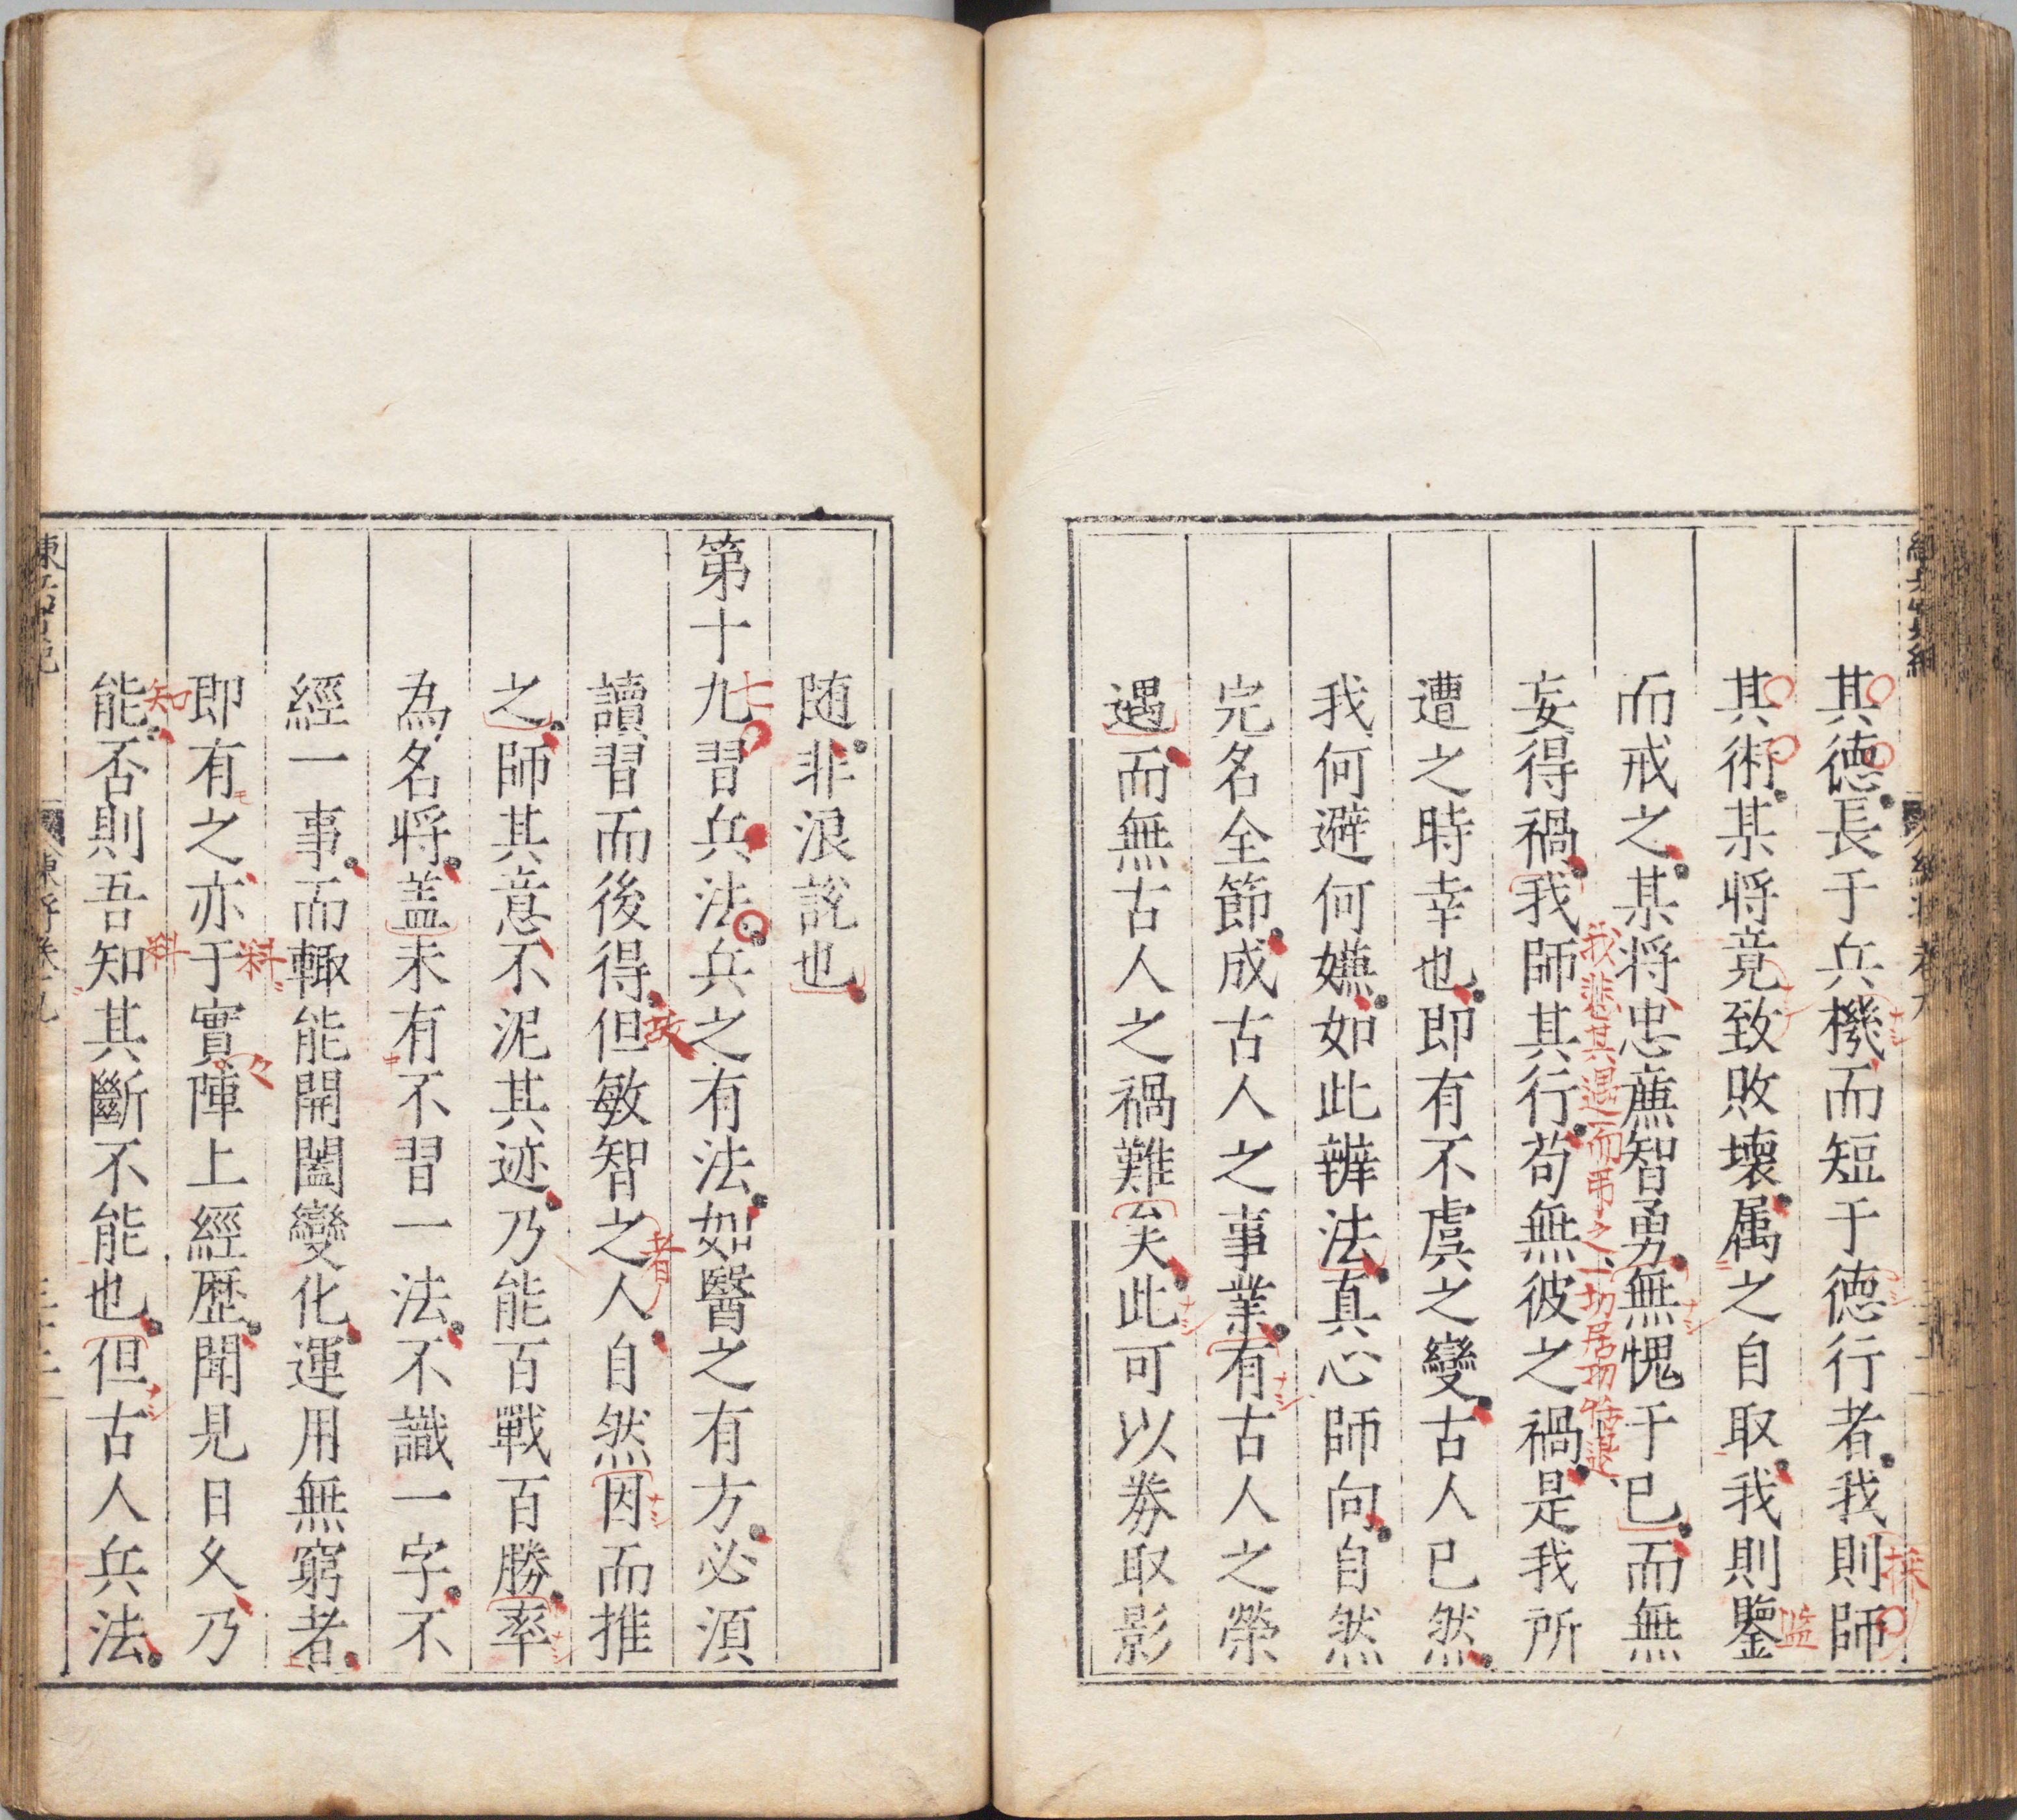 其德長于兵機而短于德行者我則師
其術某将竟致敗壞属之自取我則鑒
而戒之某将忠亷智勇無愧于已而無
妄得禍我師其行苟無彼之禍是我所
遭之時幸也即有不虞之變古人已然
我何避何嫌如此辦法真心師向自然
完名全節成古人之事業有古人之榮
遇而無古人之禍難矣此可以券取影
随非浪說也
第十九習兵法兵之有法如醫之有方必須
讀習而後得但敏智之人自然因而推
之師其意不泥其迹乃能百戰百勝率
為名将盖未有不習一法不識一字不
經一事而輙能開闔變化運用無窮者
即有之亦于實陣上經歷聞見日久乃
能否則吾知其斷不能也但古人兵法
採
監
我悲其遇而弔之一切居功
七
故
者
料
知
料